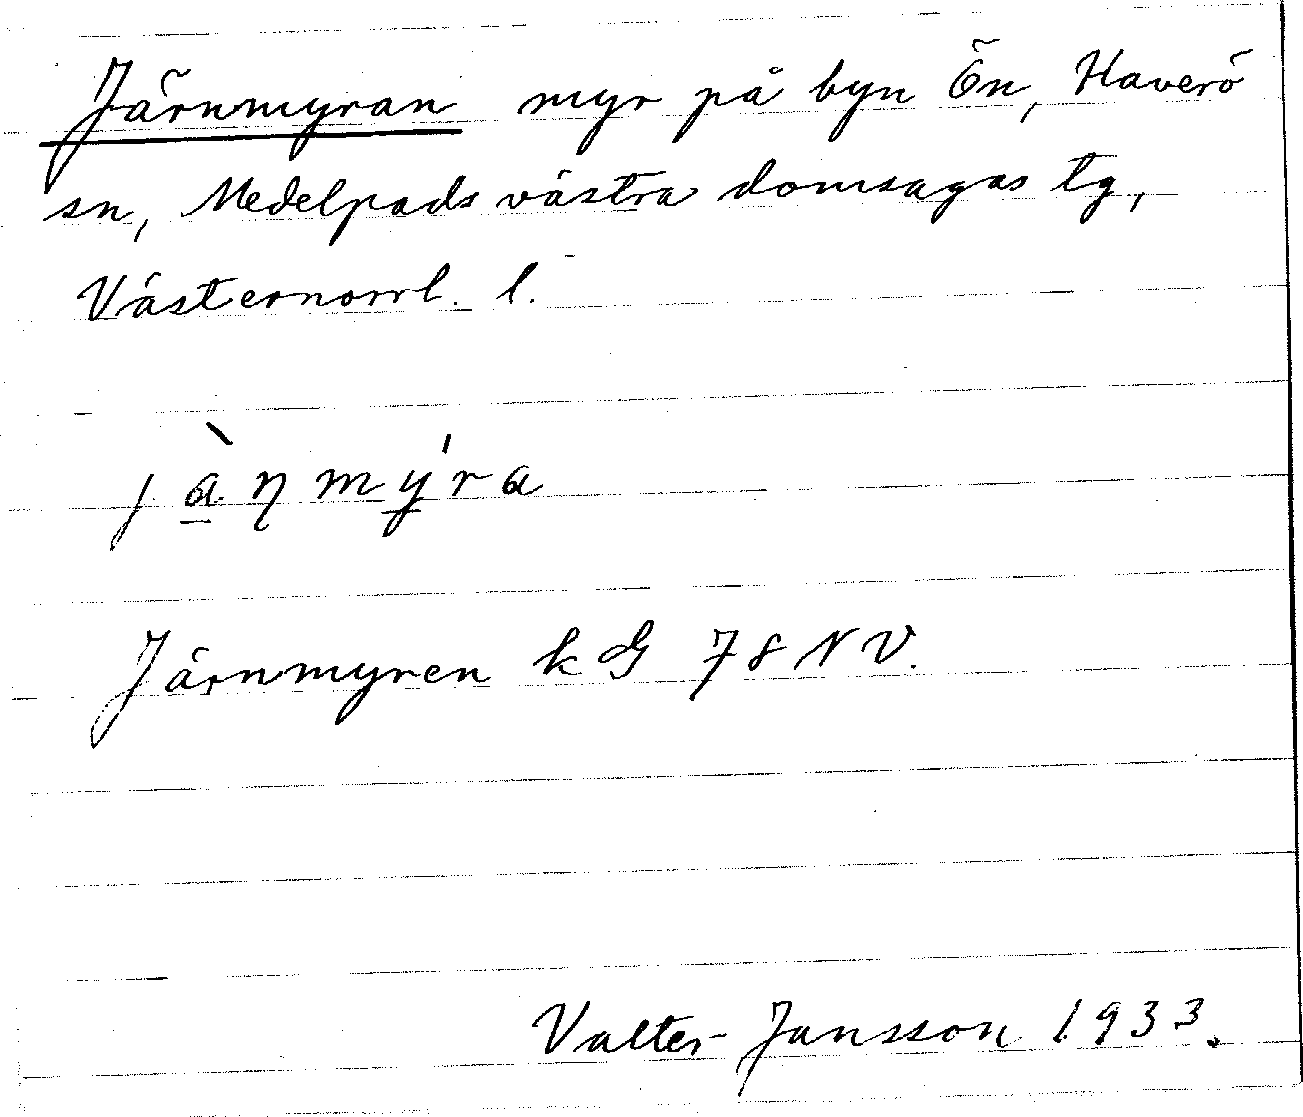 Järnmyran myr på byn Ön, Haverö
sn, Medelpads västra domsagas tg,
Västernorrl. l.
jàṇmýra
Järnmyren kG 78 NV.
Valter Jansson 1933.